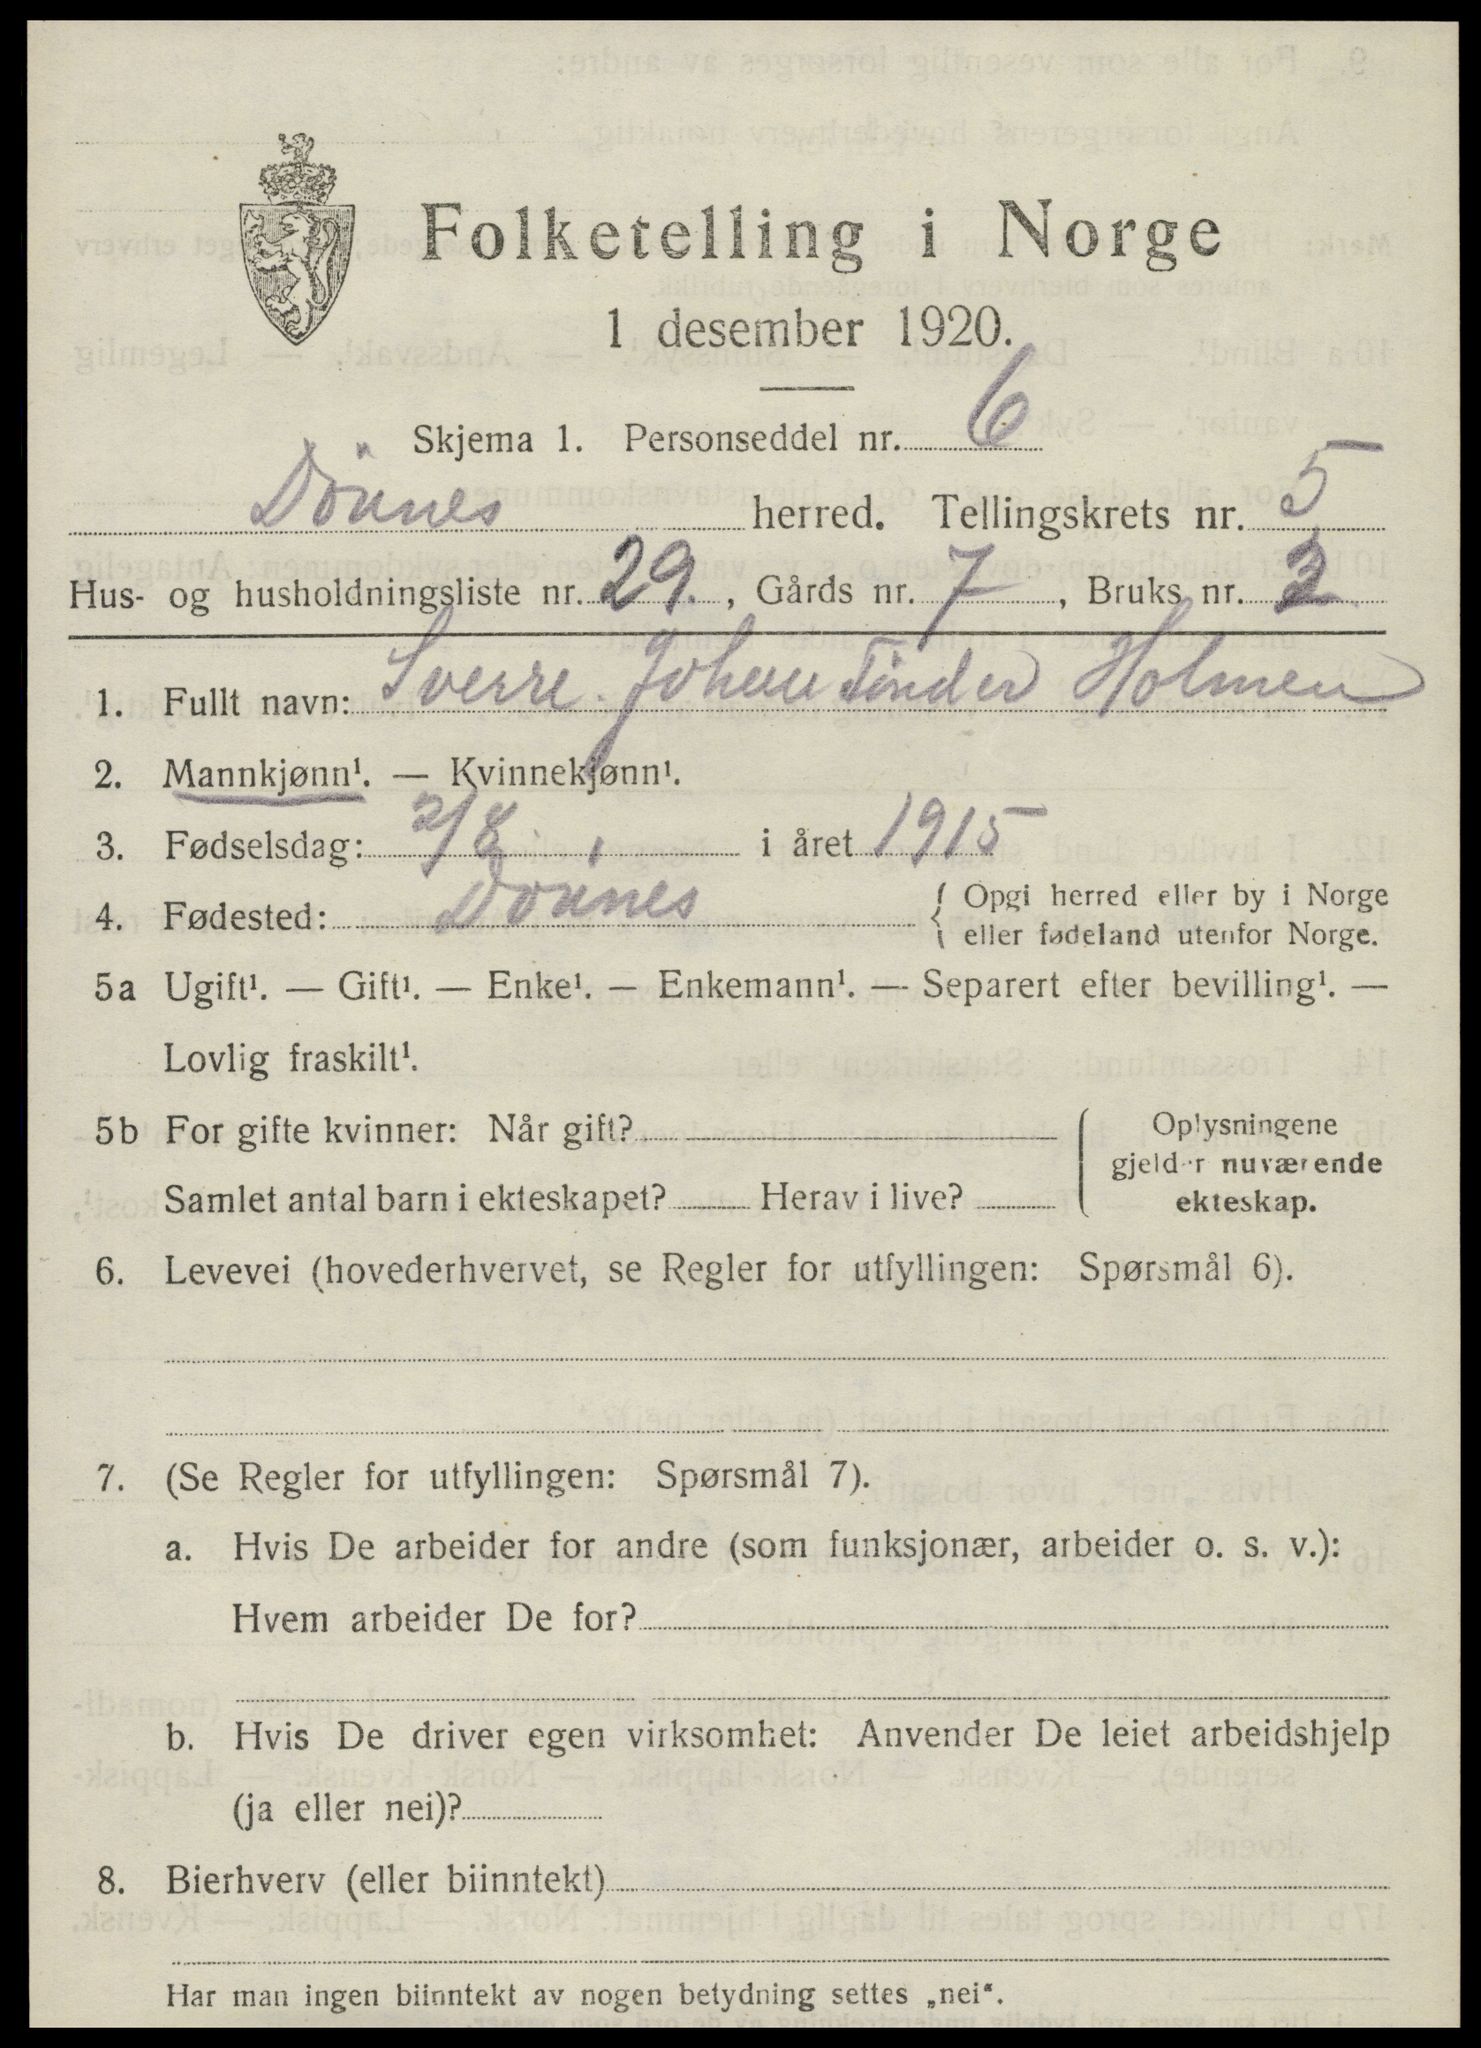 Folketelling i Norge
1 desember 1920.
Skjema 1. Personseddel nr. 6
Dönnes herred. Tellingskrets nr. 5
Hus- og husholdningsliste nr. 29. , Gårds nr. 7 , Bruks nr.
1. Fullt navn: Sverre. Johan Tönder Holmen
2. Mannkjønn¹. — Kvinnekjønn¹.
3. Fødselsdag: 2/8 i året 1915
4. Fødested: Dönnes { Opgi herred eller by i Norge
eller fødeland utenfor Norge.
5a Ugift¹. — Gift¹. — Enke¹. — Enkemann¹. — Separert efter bevilling¹. —
Lovlig fraskilt¹.
5b For gifte kvinner: Når gift? Oplysningene
gjelder nuværende
Samlet antal barn i ekteskapet? Herav i live? ekteskap.
6. Levevei (hovederhvervet, se Regler for utfyllingen: Spørsmål 6).
7. (Se Regler for utfyllingen: Spørsmål 7).
a. Hvis De arbeider for andre (som funksjonær, arbeider o. s. v.):
Hvem arbeider De for?
b. Hvis De driver egen virksomhet: Anvender De leiet arbeidshjelp
(ja eller nei)?
8. Bierhverv (eller biinntekt)
Har man ingen biinntekt av nogen betydning settes „nei“.